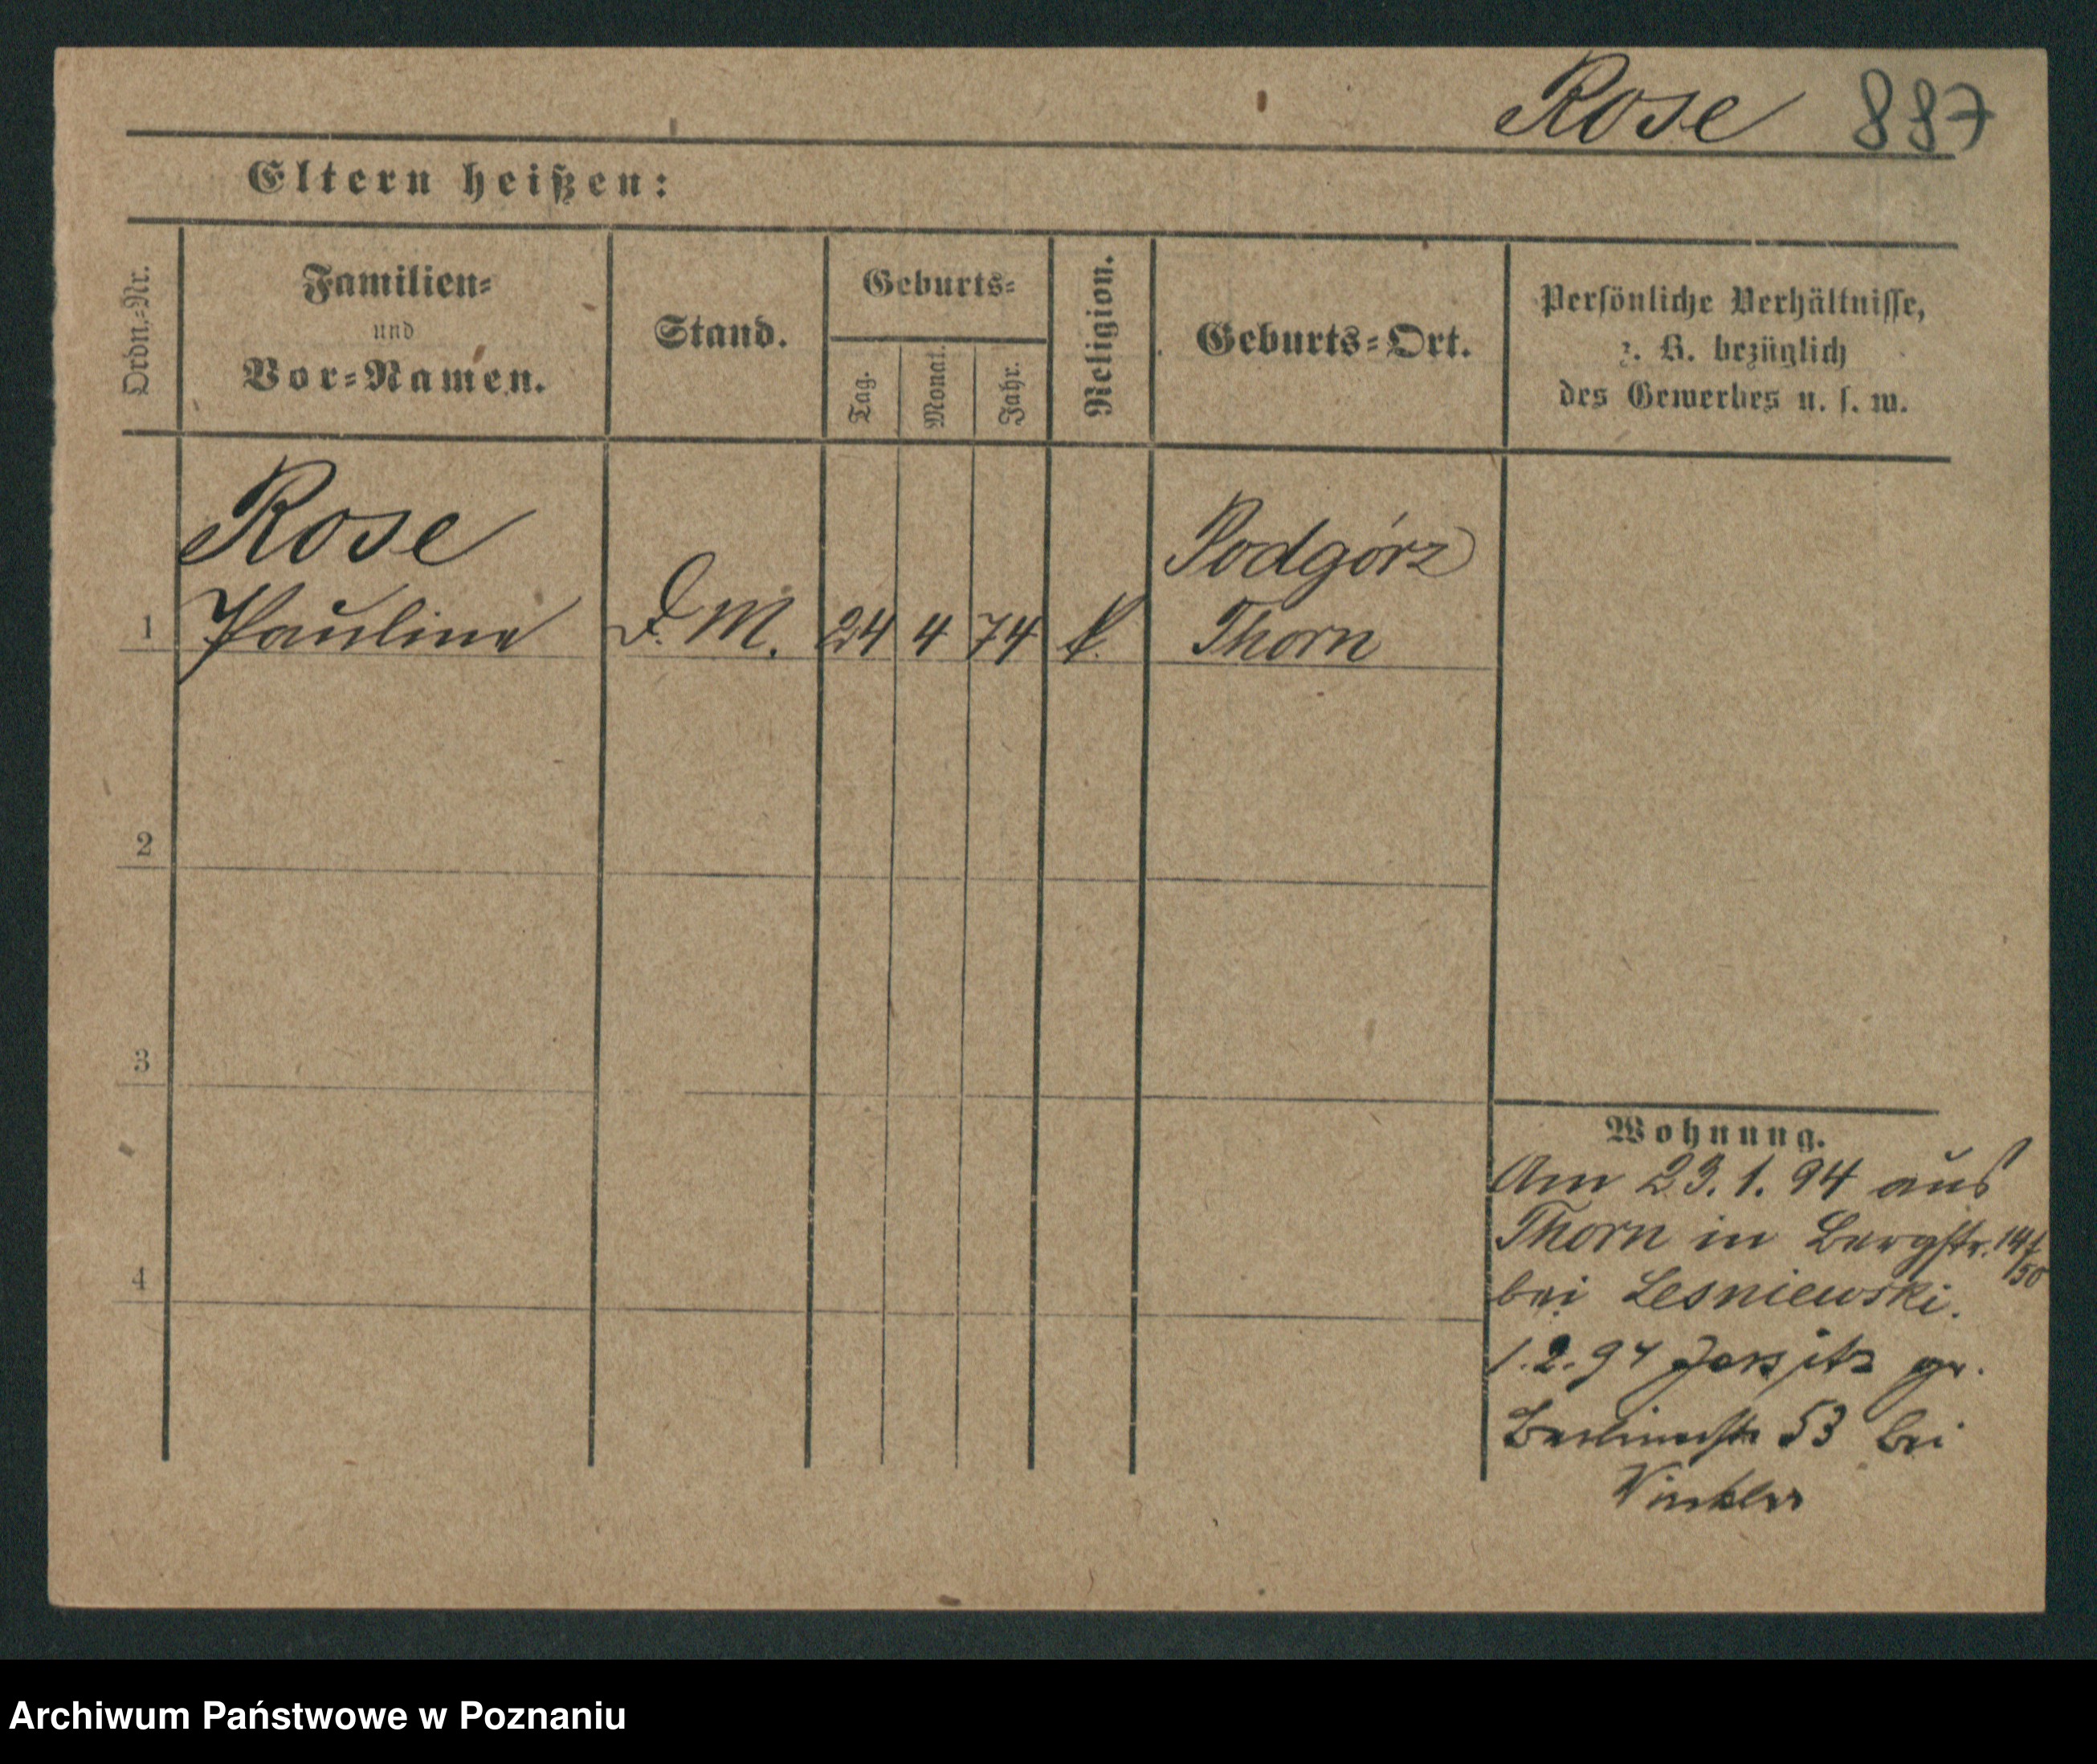 Rose 887
Eltern heißen:
Ordn.-Nr.
Familien-
und
Vor-Namen.
Stand.
Geburts-
Tag.
Monat.
Jahr.
Religion.
Geburts-Ort.
Persönliche Verhältnisse,
z. B. bezüglich
des Gewerbes u. s. w.
Rose
Podgórz
1 Pauline D. M. 24 4 74 k. Thorn
2
3
4
Wohnung.
Am 23. 1. 94 aus
Thorn in Bergstr. 14/
/50
bei Lesniewski.
1. 2. 94 Jersitz gr.
Berlinerstr 53 bei
Winkler
Archiwum Państwowe w Poznaniu